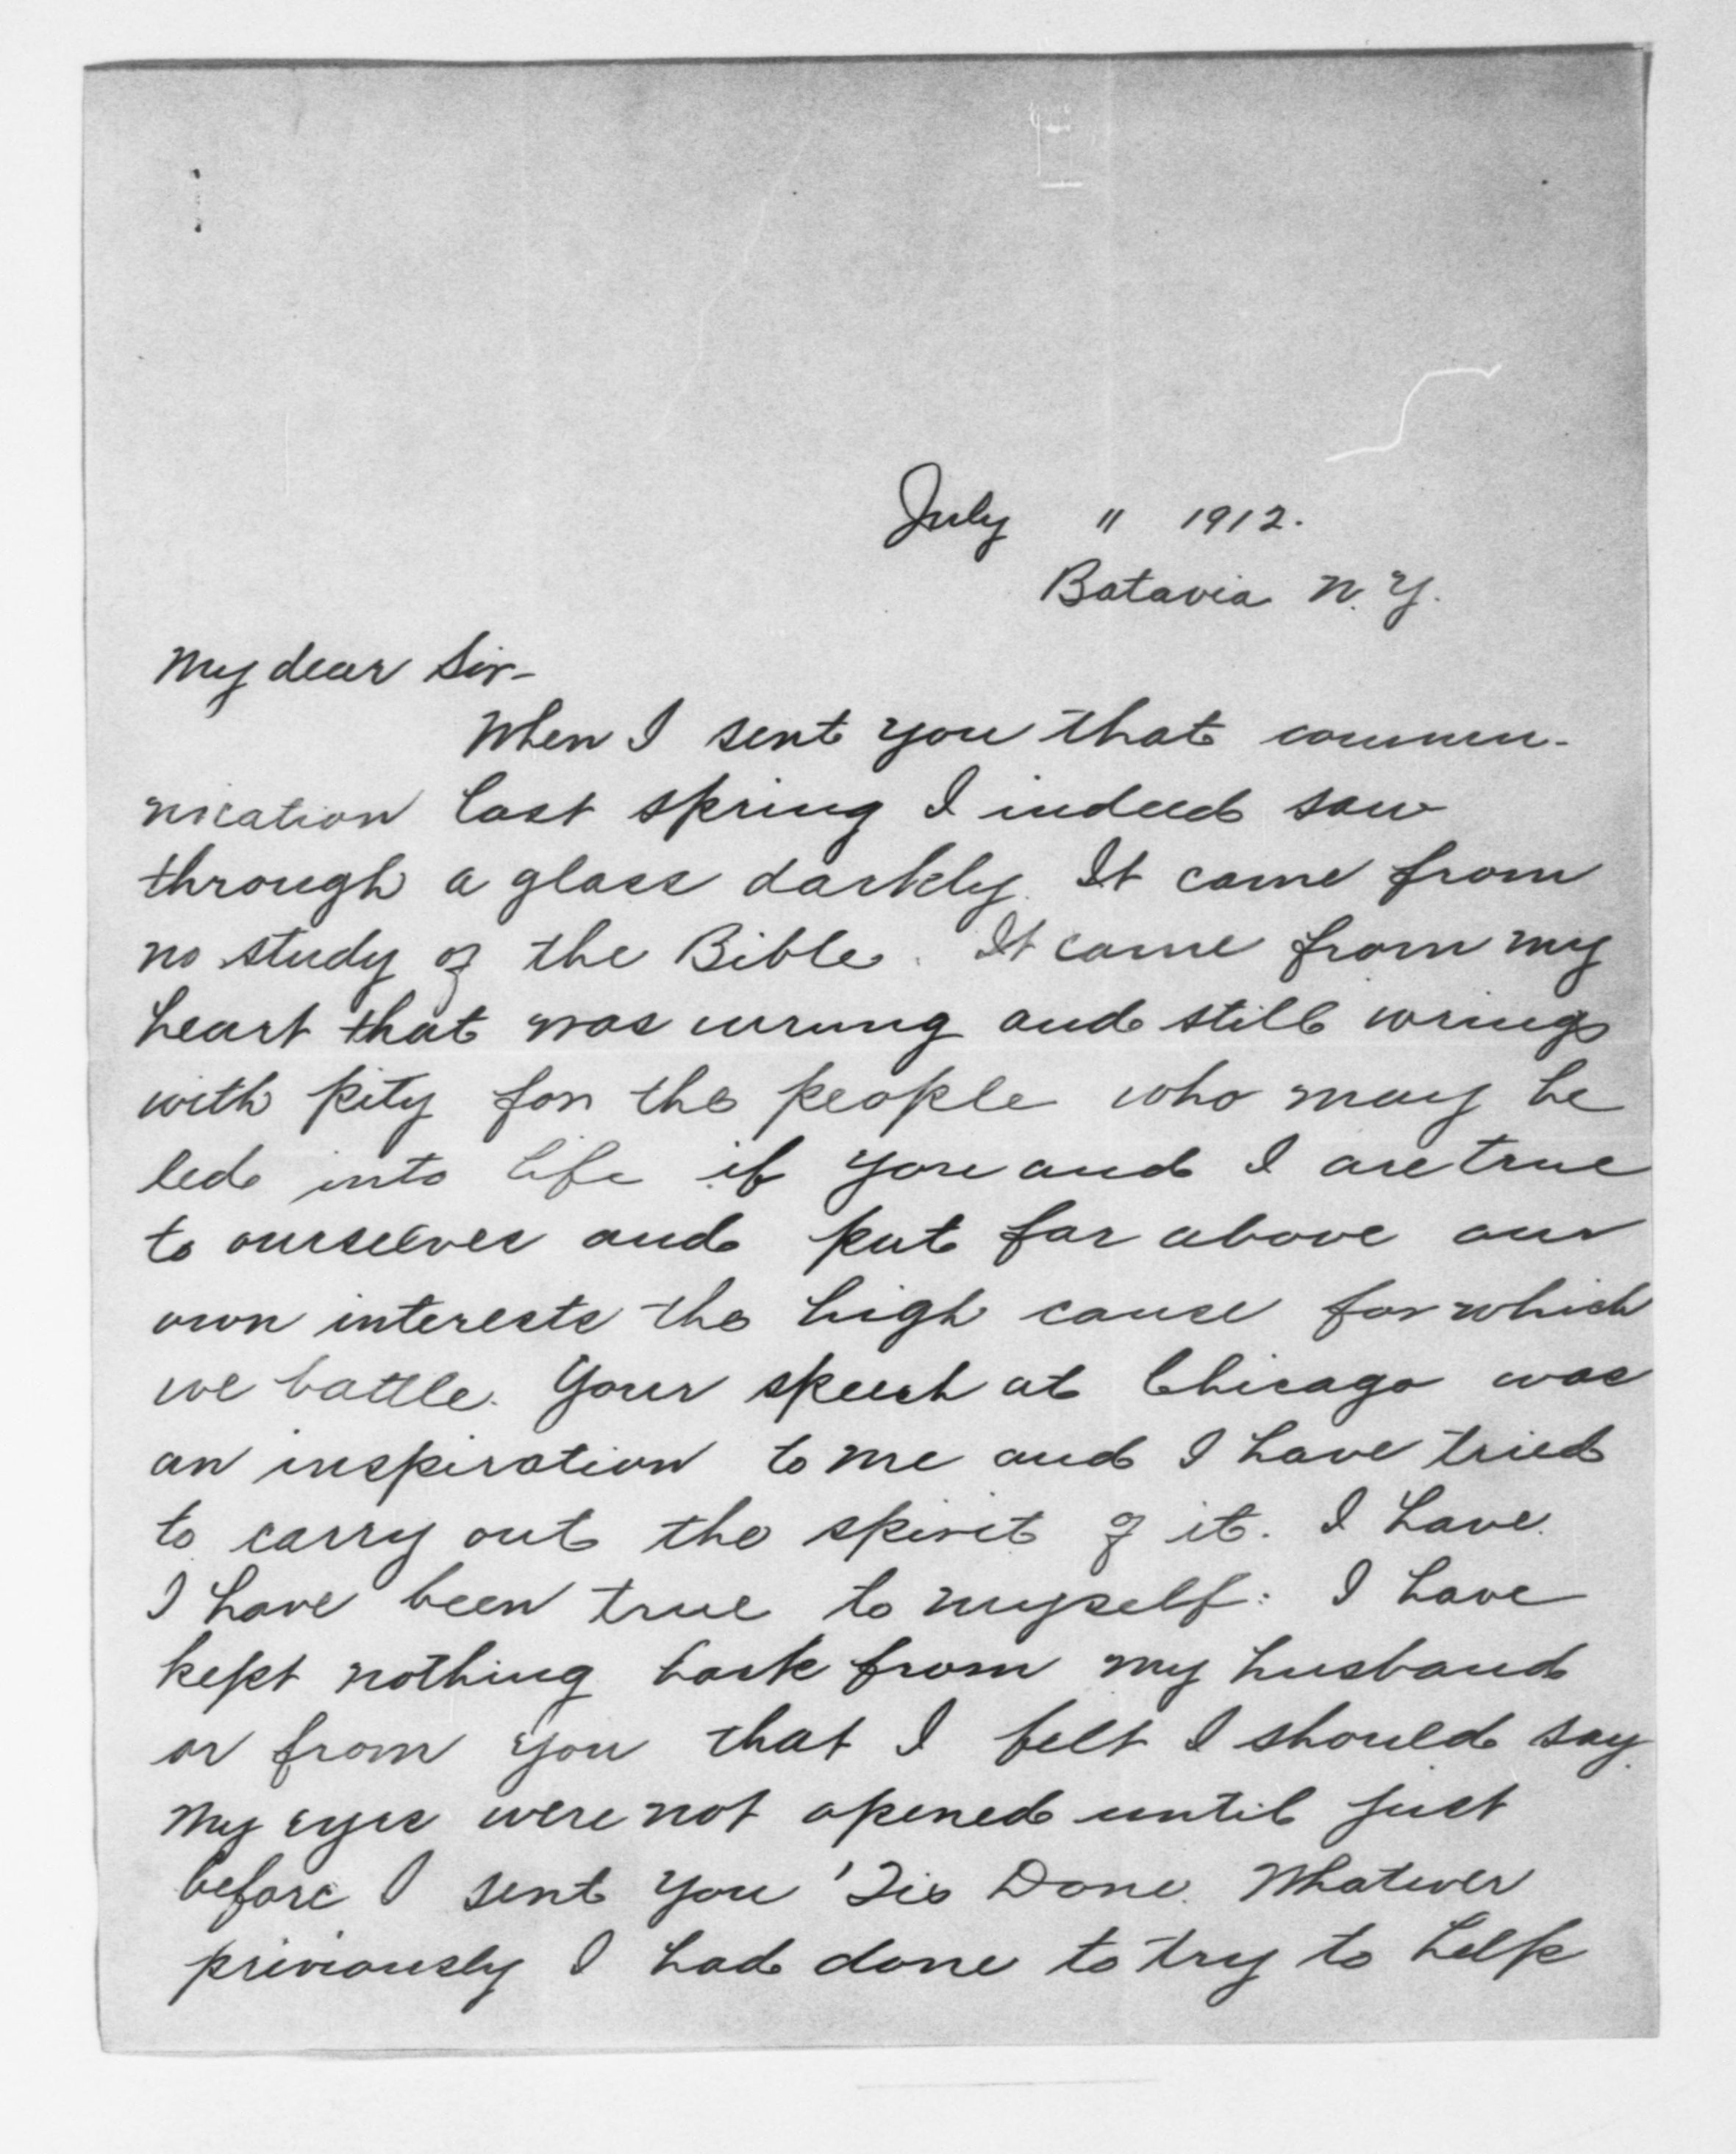 July " 1912.
Batavia N.Y.
My dear Sir-
When I sent you that commu-
nication last spring I indeed saw
through a glass darkly. It came from
no study of the Bible. It came from my
heart that was wrung and still wrings
with pity for the people who may be
led into life if you and I are true
to ourselves and put far above our
own interests the high cause for which
we battle. Your speech at Chicago was
an inspiration to me and I have tried
to carry out the spirit of it. I have
I have been true to myself: I have
kept nothing back from my husband
or from you that I felt I should say.
My eyes were not opened until just
before I sent you 'Tis Done. Whatever
previously I had done to try to help